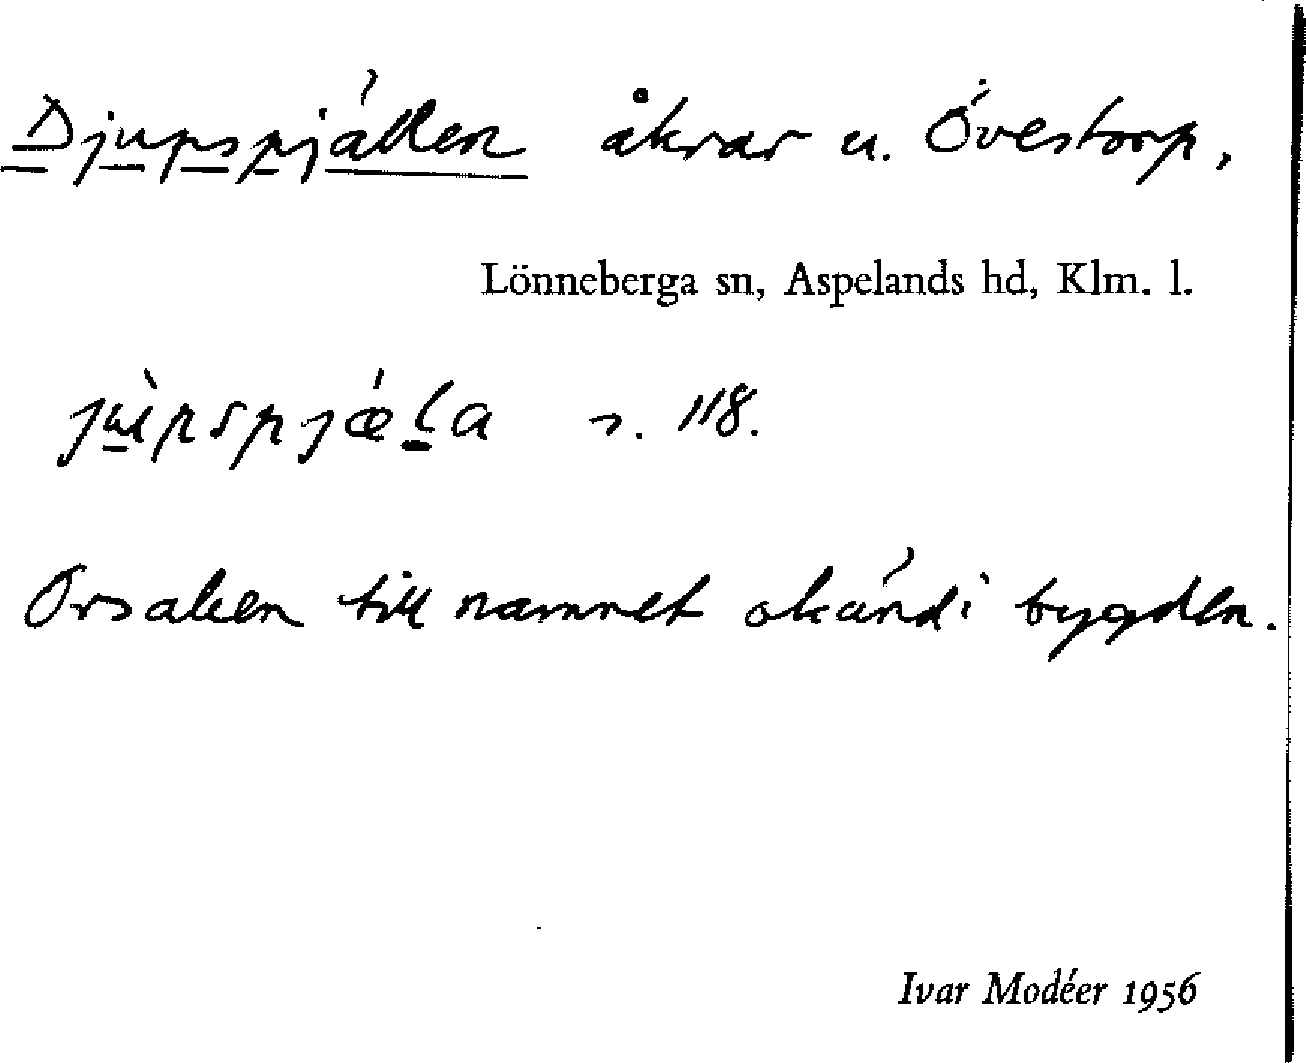 Djupspjällen åkrar u. Övestorp,
Lönneberga sn, Aspelands hd, Klm. l.
jùpspjǽla s. 118.
Orsaken till namnet okänd i bygden.
Ivar Modéer 1956